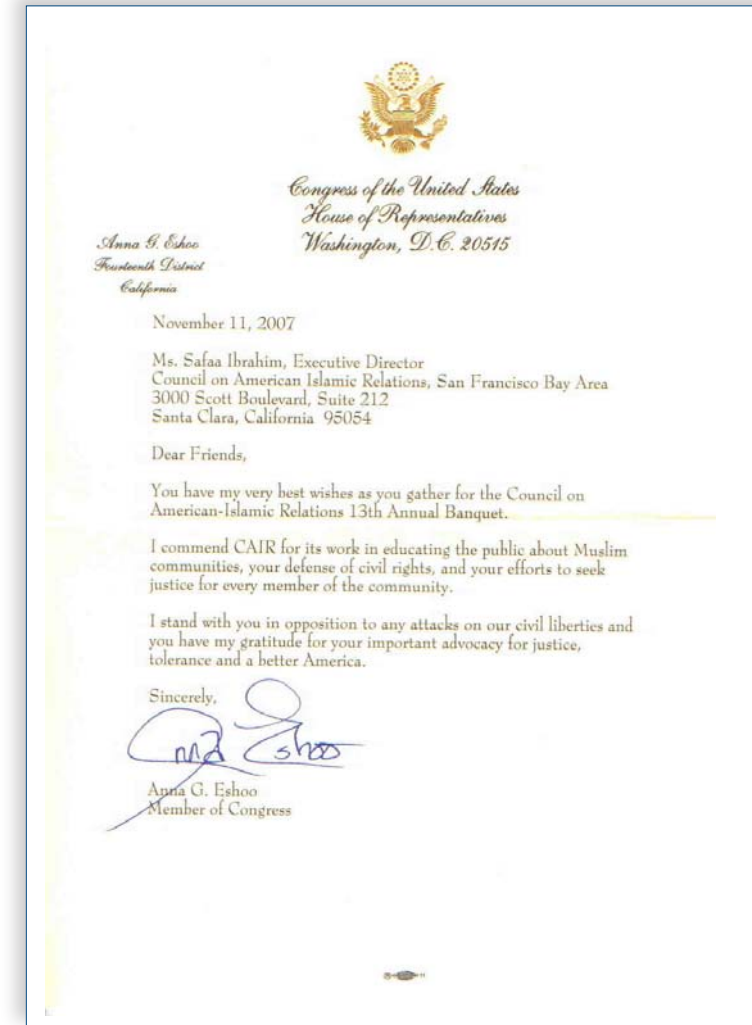 Congress of the United States
House of Representatives
Washington, D.C. 20515
Anna G. Eshoo
Fourteenth District
California
November 11, 2007
Ms. Safaa Ibrahim, Executive Director
Council on American Islamic Relations, San Francisco Bay Area
3000 Scott Boulevard, Suite 212
Santa Clara, California 95054
Dear Friends,
You have my very best wishes as you gather for the Council on
American-Islamic Relations 13th Annual Banquet.
I commend CAIR for its work in educating the public about Muslim
communities, your defense of civil rights, and your efforts to seek
justice for every member of the community.
I stand with you in opposition to any attacks on our civil liberties and
you have my gratitude for your important advocacy for justice,
tolerance and a better America.
Sincerely,
Anna Eshoo
Anna G. Eshoo
Member of Congress